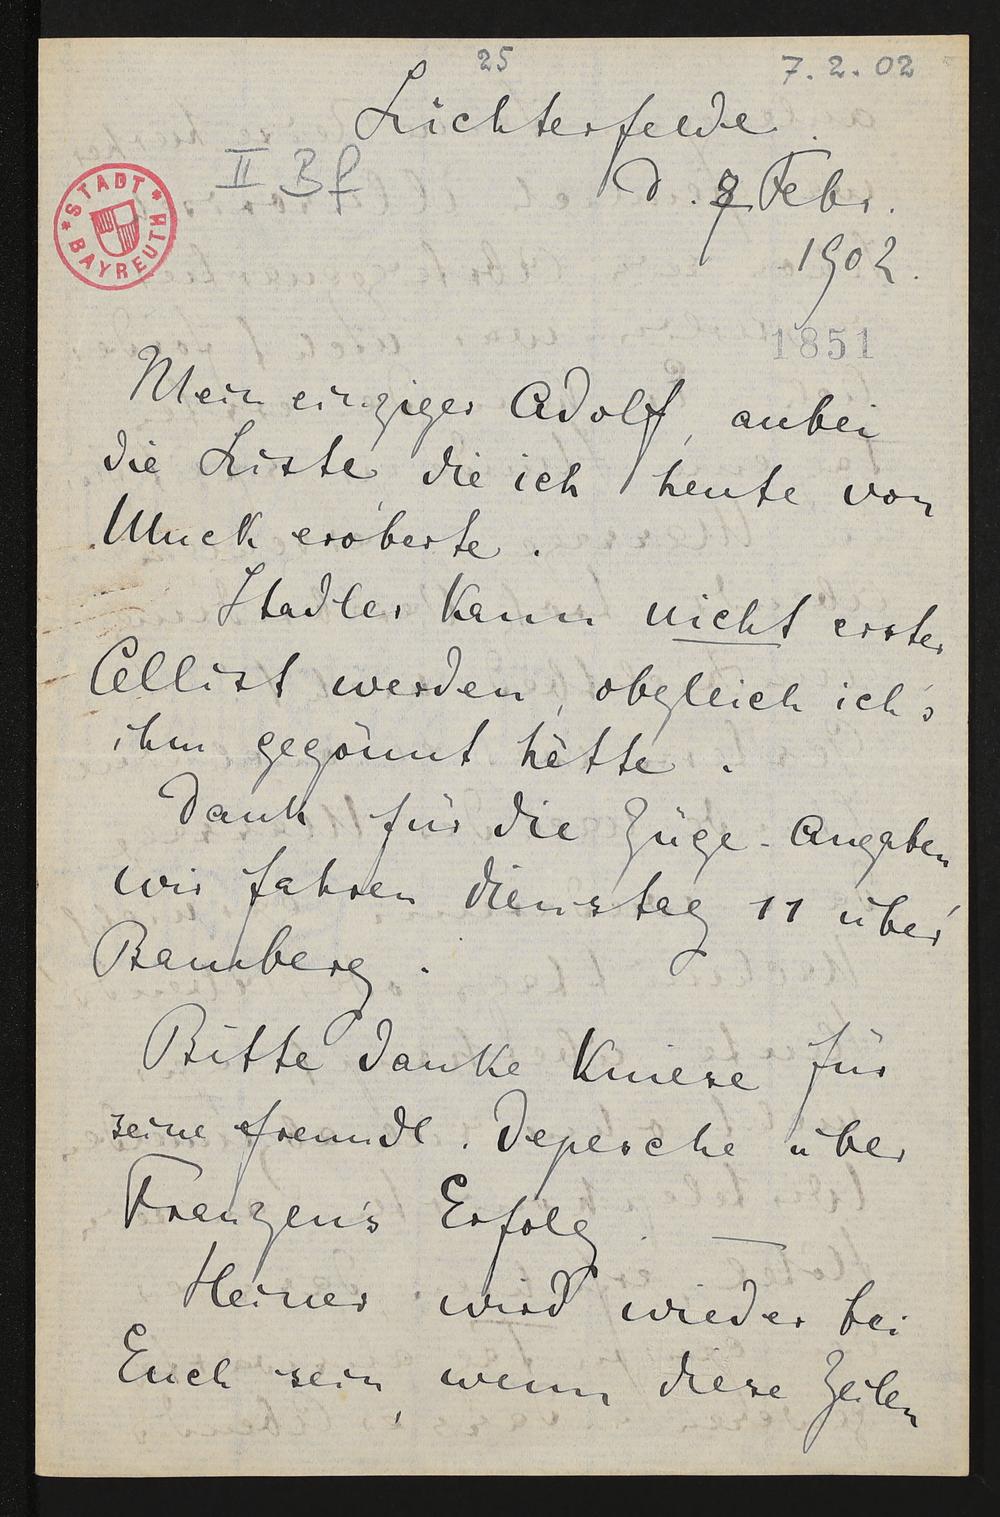 25
7.2.02
Lichterfelde.
II Bf
d. 7 Febr.
1902.
STADT BAYREUTH
1851
Mein einziger Adolf, anbei
die Liste, die ich heute von
Muck eroberte.
Stadler kann nicht erster
Cellist werden, obgleich ich's
ihm gegönnt hätte.
Dank für die Züge-Angaben
wir fahren Dienstag 11 über
Bamberg.
Bitte danke Kniese für
seine freundl. Depesche über
Franzen's Erfolg. —
Heiner wird wieder bei
Euch sein, wenn diese Zeilen